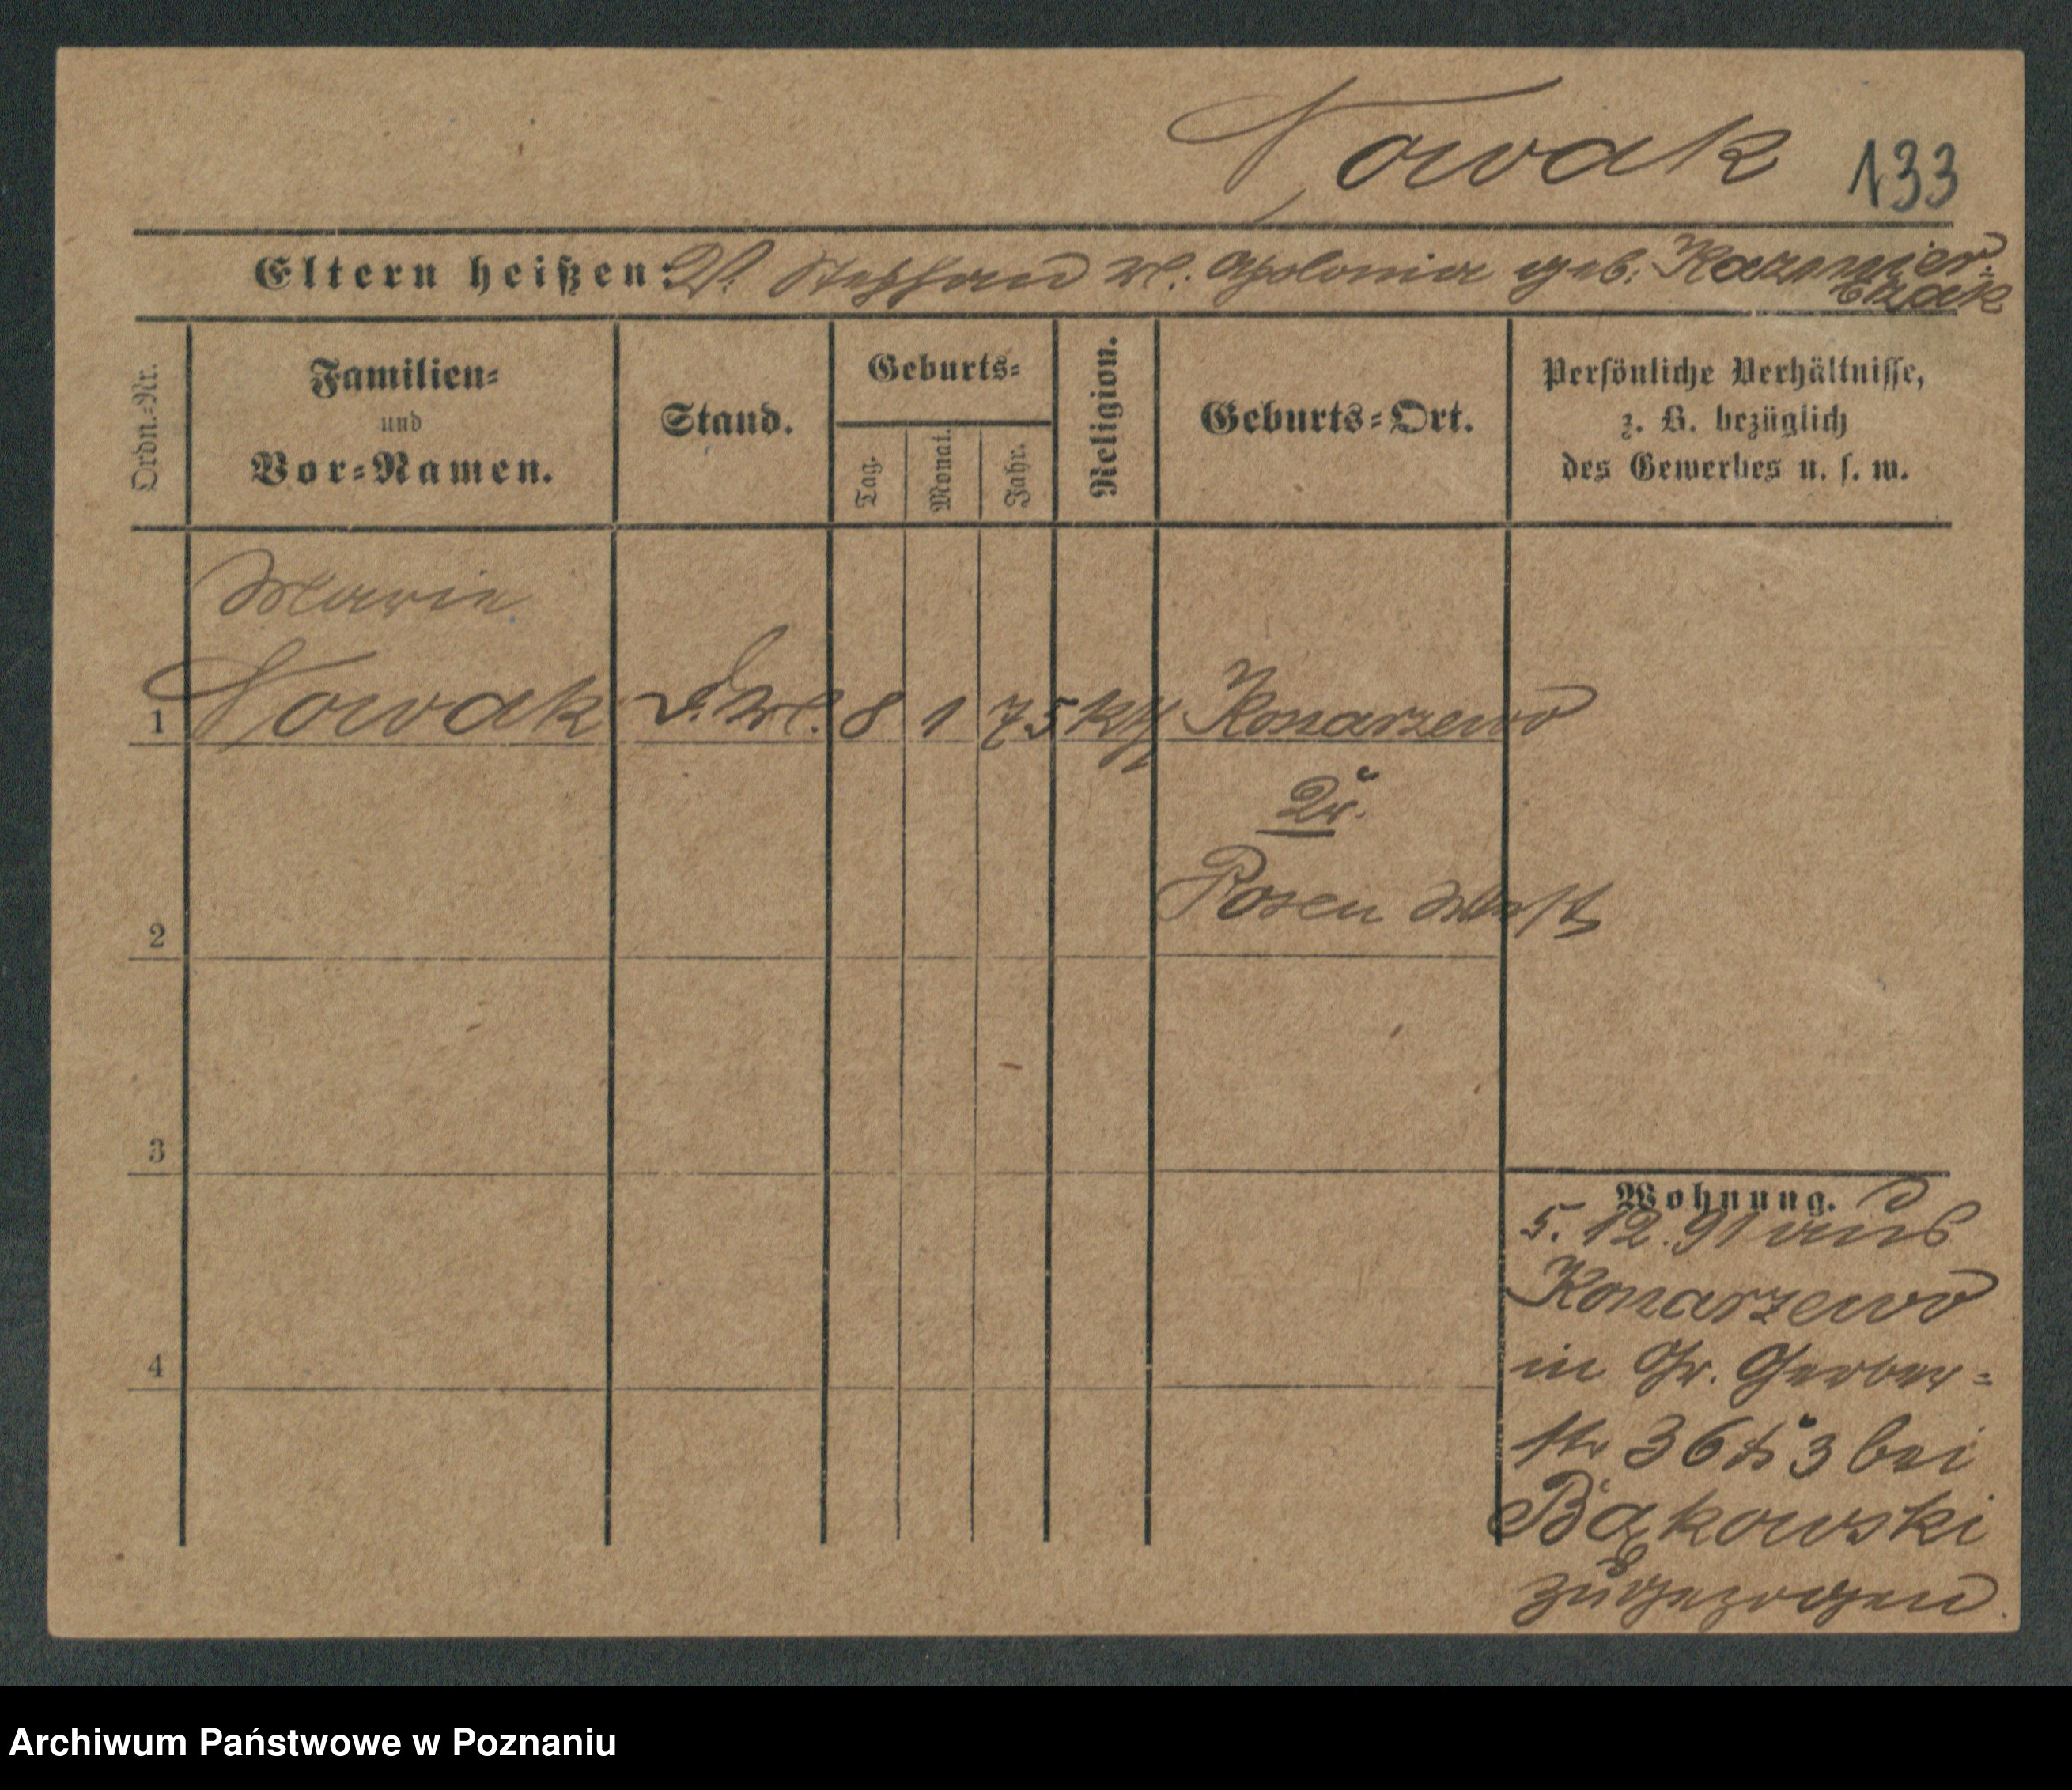 Nowak 133
Eltern heißen: V. Stephan M. Apolonia geb. Kazmier=
czak
Ordn.=Nr.
Familien=
und
Vor=Namen.
Stand.
Geburts=
Tag.
Monat.
Jahr.
Religion.
Geburts=Ort.
Persönliche Verhältnisse,
z. B. bezüglich
des Gewerbes u. s. w.
Marie
1 Nowak D. M. 8 1 75 kth Konarzewo
Kr.
2 Posen West
3
4
Wohnung.
5. 12. 91 aus
Konarzewo
in Gr. Gerber=
str 36 3 bei
Bąkowski
zugezogen
Archiwum Państwowe w Poznaniu